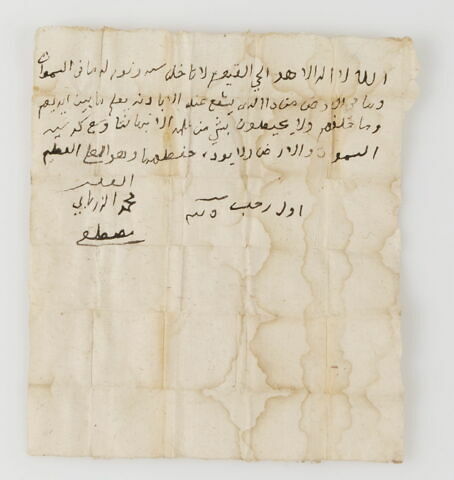 الله لا اله الا هو الحي القيوم لا تاخذه سنه ونوم له ما في السموات
وما في الارض من ذا الذي يشفع عنده الا باذنه يعلم ما بين ايديهم
وما خلفهم ولا يحيطون بشي من علمه الا بما شا وسع كرسيه
السموات والارض ولا يوده حفظهما وهو العلي العظيم
الفقير
محمد
اول رجب
مصطفى